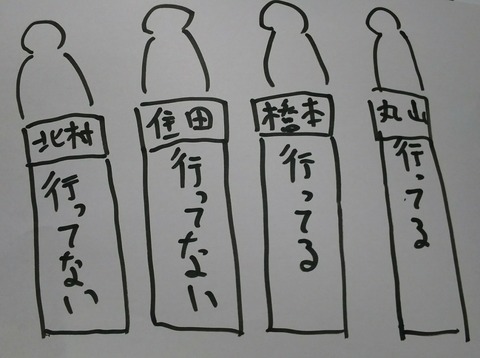 北村
行ってない
住田
行ってない
橋本
行ってる
丸山
行ってる